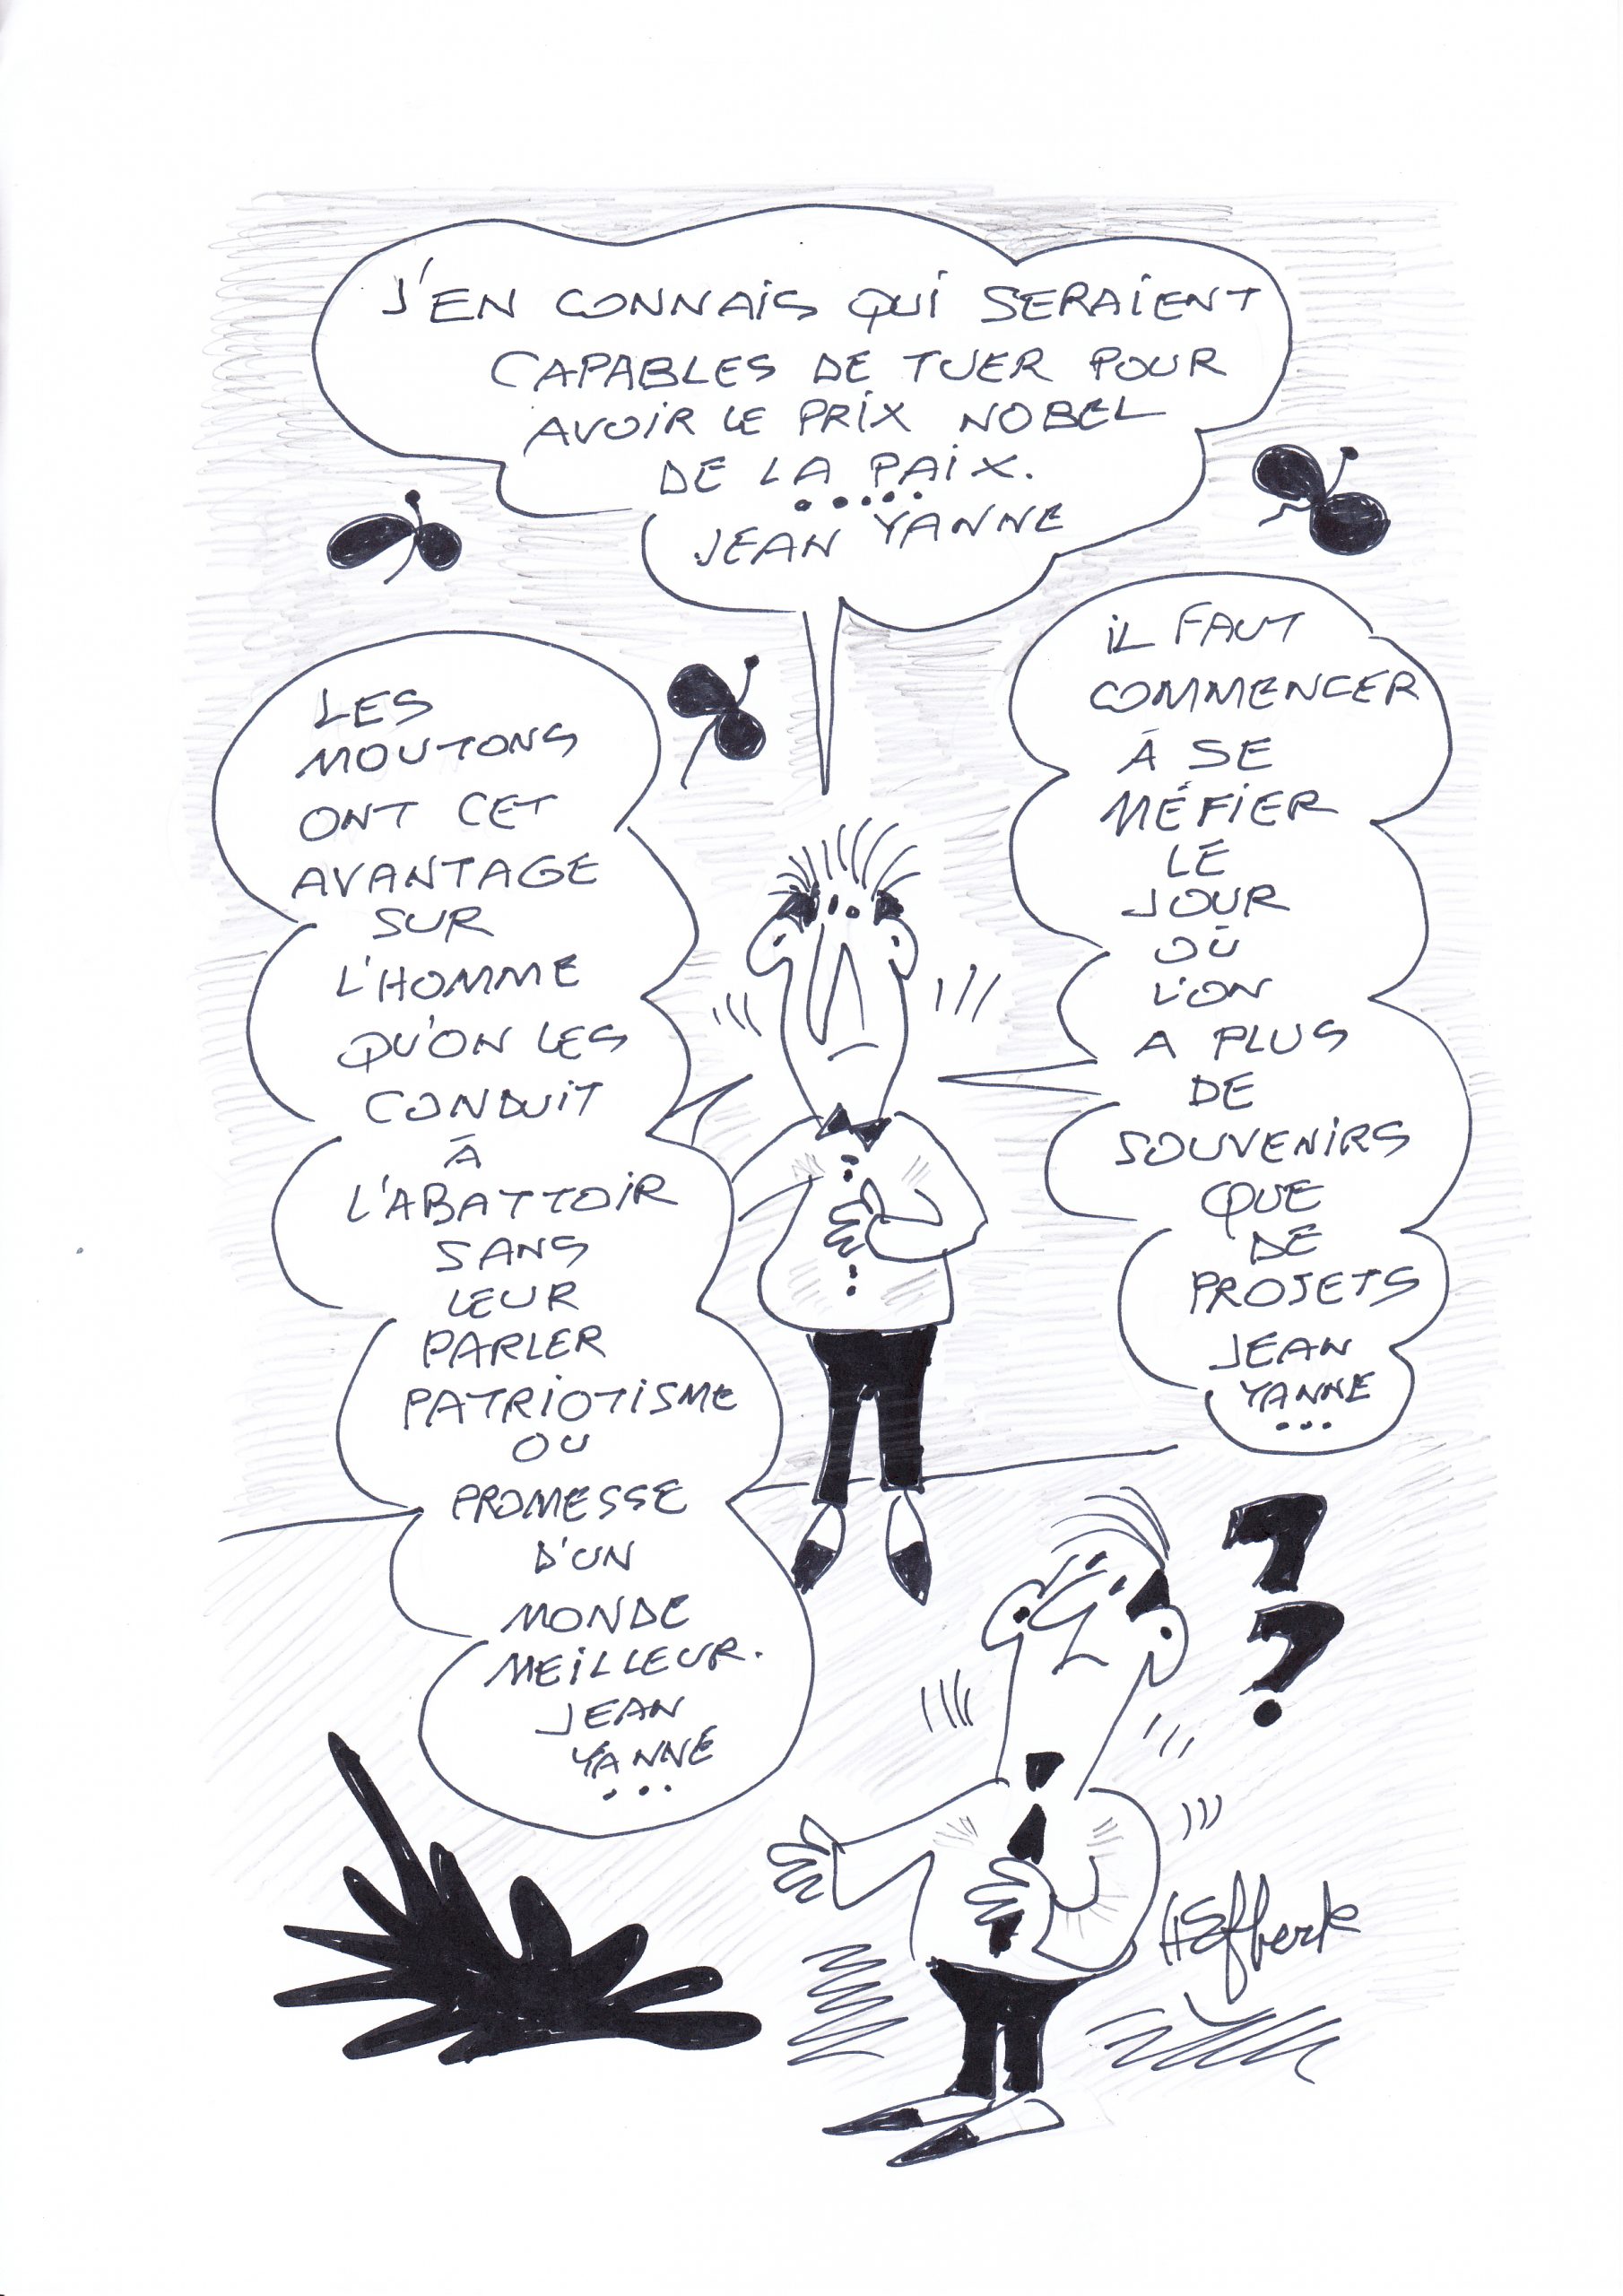 J'EN CONNAIS QUI SERAIENT
CAPABLES DE TUER POUR
AVOIR LE PRIX NOBEL
DE LA PAIX.
.....
JEAN YANNE
LES
MOUTONS
ONT CET
AVANTAGE
SUR
L'HOMME
QU'ON LES
CONDUIT
À
L'ABATTOIR
SANS
LEUR
PARLER
PATRIOTISME
OU
PROMESSE
D'UN
MONDE
MEILLEUR.
JEAN
YANNE
...
IL FAUT
COMMENCER
À SE
MÉFIER
LE
JOUR
OÙ
L'ON
A PLUS
DE
SOUVENIRS
QUE
DE
PROJETS
JEAN
YANNE
...
??